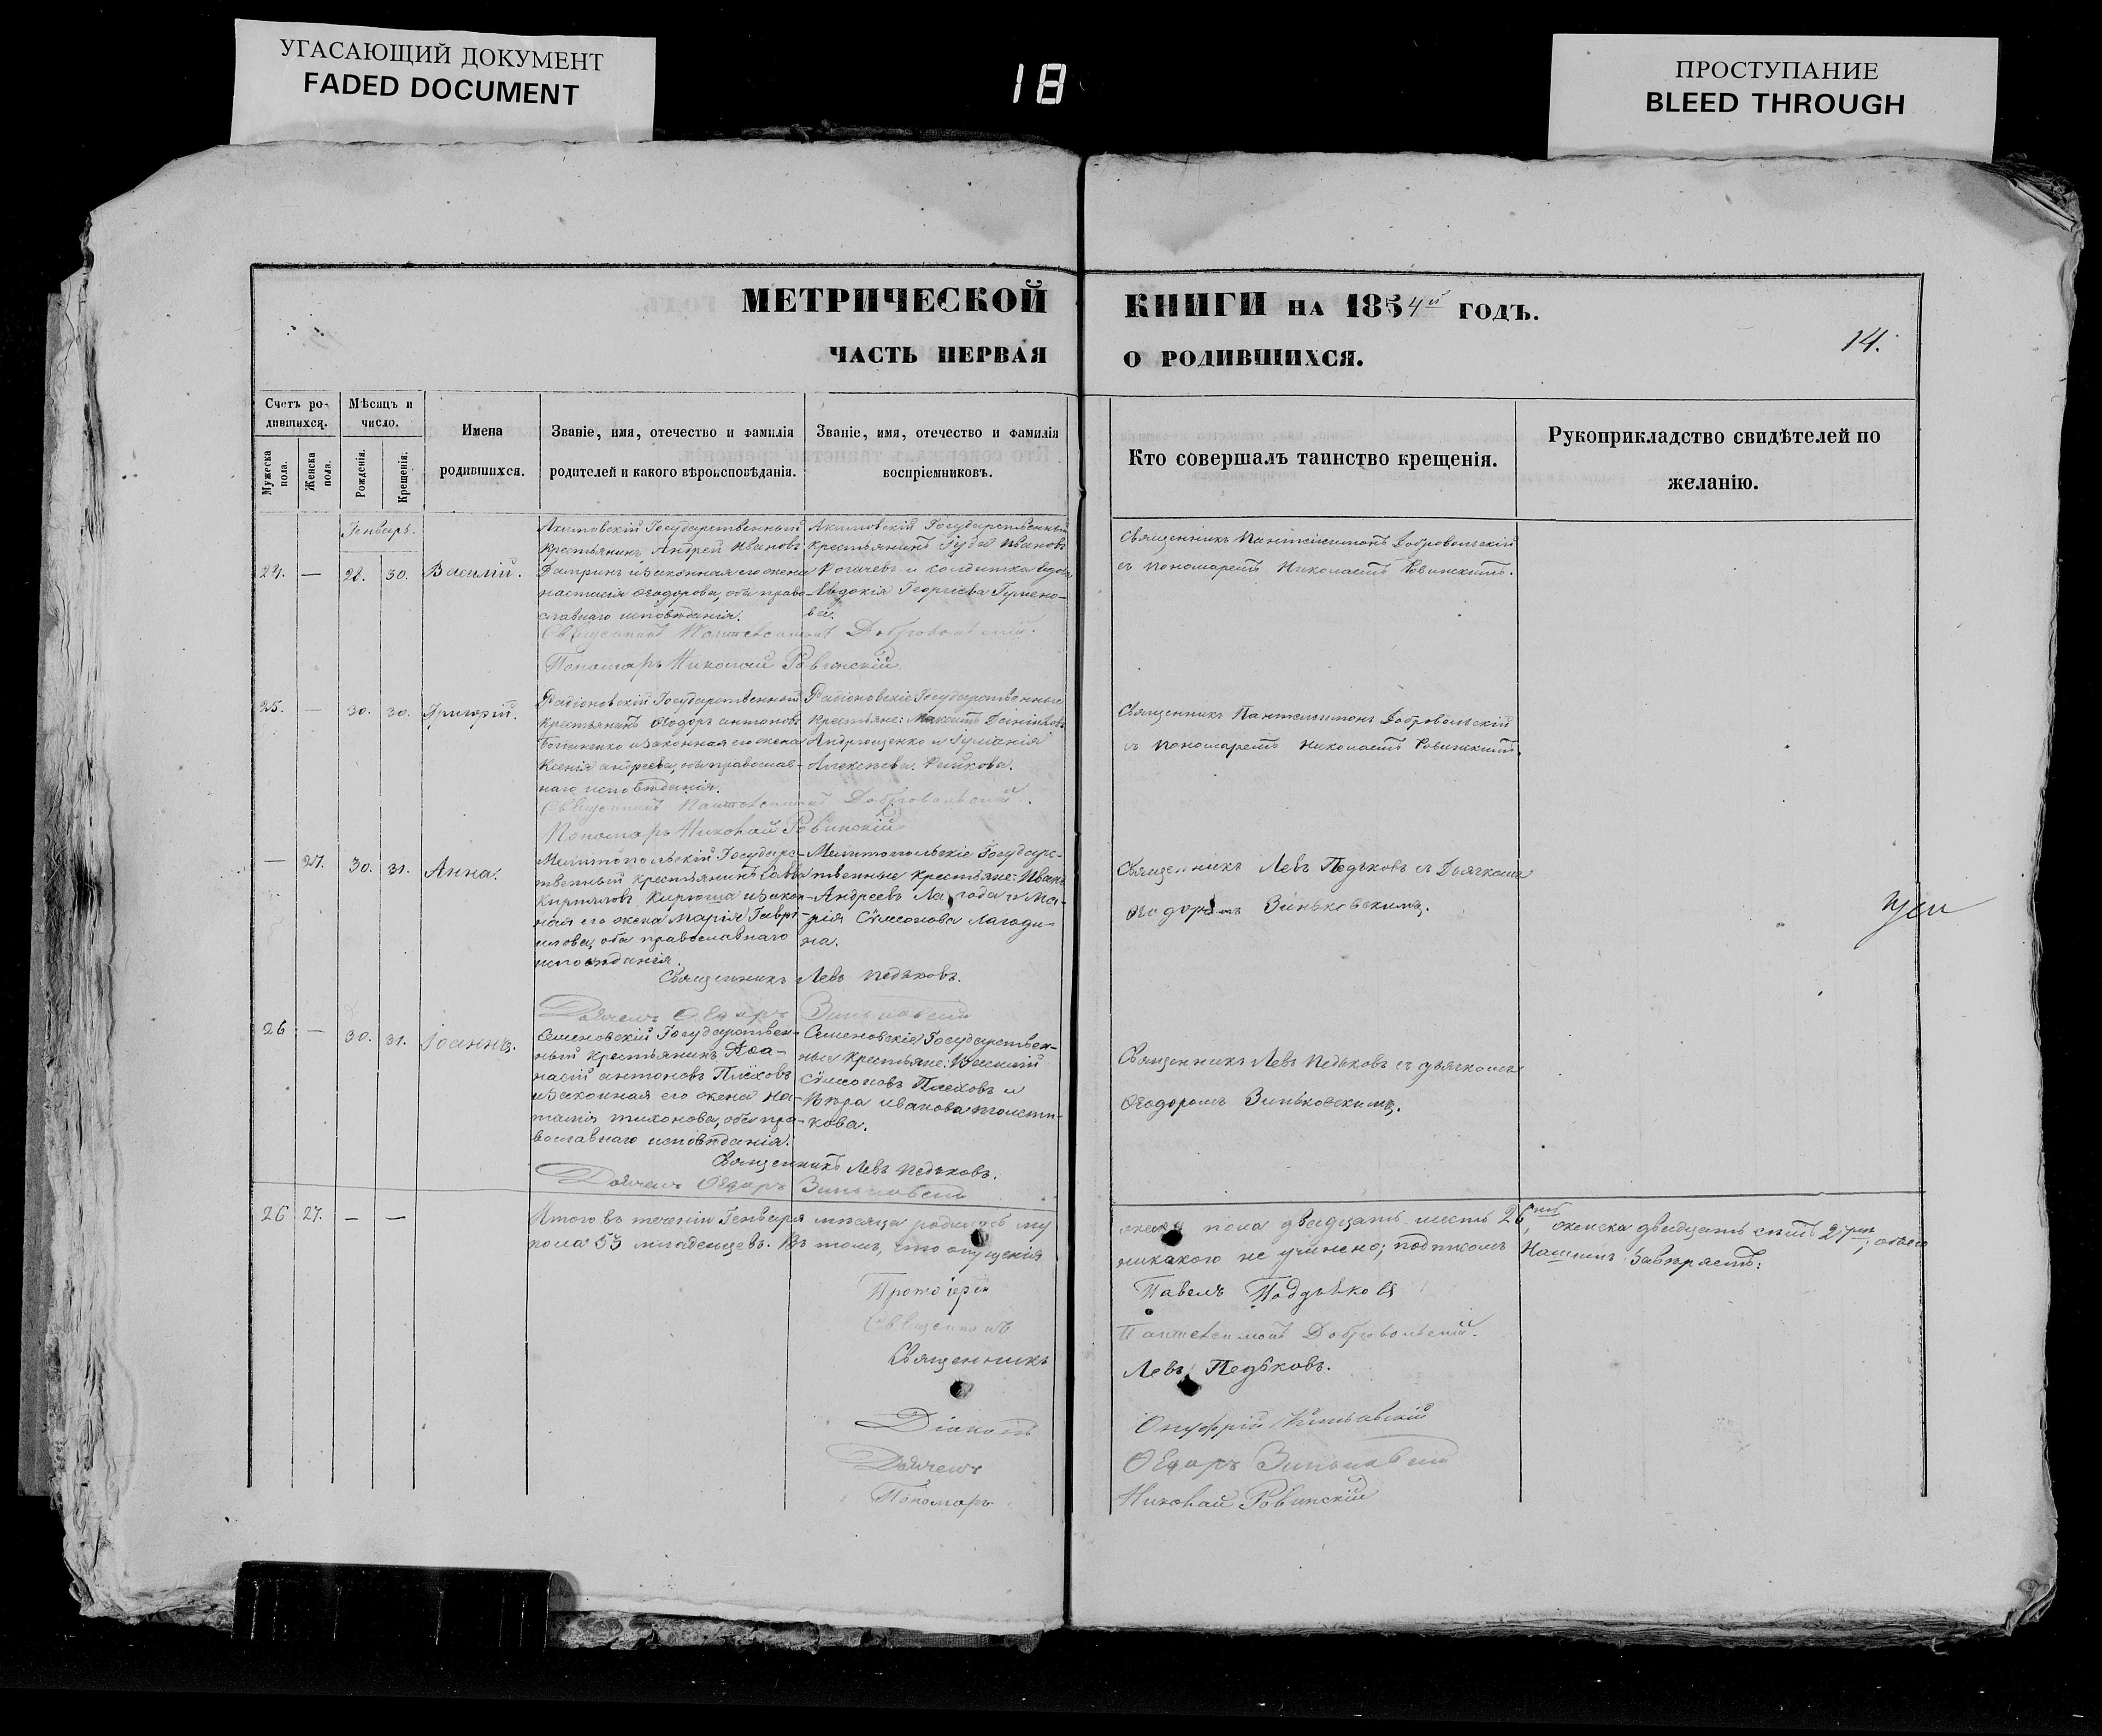 УГАСАЮЩИЙ ДОКУМЕНТ
FADED DOCUMENT
18
ПРОСТУПАНИЕ
BLEED THROUGH
МЕТРИЧЕСКОЙ КНИГИ НА 1854й ГОДЪ.
14.
ЧАСТЬ ПЕРВАЯ О РОДИВШИХСЯ.
Счетъ ро-
дившихся.
Мужеска
пола.
Женска
пола.
Мѣсяцъ и
число.
Рожденія.
Крещенія.
Имена
родившихся.
Званіе, имя, отечество и фамилія
родителей и какого вѣроисповѣданія.
Званіе, имя, отечество и фамилія
воспріемниковъ.
Кто совершалъ таинство крещенія.
Рукоприкладство свидѣтелей по
желанію.
Генварь.
24. — 28. 30. Василій.
Акимовскій Государственный
Крестьянинъ Андрей Ивановъ
и законная его жена
настасія Ѳеодорова, оба право-
славнаго исповѣданія.
Акимовскій Государственный
Крестьянинъ Ивановъ
Рогачевъ и солдатка вдова
Евдокія Георгіева
ва.
Священникъ Пантелеимонъ Добровольскій
съ пономаремъ Николаемъ Ровинскимъ.
Священникъ Пантелеимонъ Добровольскій.
Пономарь Николай Ровинскій
25. — 30. 30. Григорій.
Радіоновскій Государственный
Крестьянинъ Ѳеодоръ антоновъ
и законная его жена
Ксенія андреева, оба православ-
наго исповѣданія.
Радіоновскіе Государственные
Крестьяне: Максимъ
Андрющенко и Іуліанія
Алексѣева.
Священникъ Пантелеимонъ Добровольскій
съ пономаремъ Николаемъ Ровинскимъ.
Священникъ Пантелеимонъ Добровольскій.
Пономарь Николай Ровинскій
— 27. 30. 31. Анна.
Мелитопольскій Государс-
твенный крестьянинъ Савва
Кирилловъ и закон-
ная его жена Марія Гаврі-
илова, оба православнаго
исповѣданія.
Мелитопольскіе Государс-
твенные крестьяне: Иванъ
Андреевъ Лагода и Ма-
рія Сѵмеонова Лагоди-
на.
Священникъ Левъ Педьковъ и Дьячкомъ
Ѳеодоромъ Зиньковскимъ.
Священникъ Левъ Педьковъ.
Дьячекъ Ѳедоръ Зиньковскій
26 — 30. 31. Іоаннъ.
Семеновскій Государствен-
ный крестьянинъ Аѳа-
насій антоновъ Плѣховъ
и законная его жена На-
талія тихонова, оба пра-
вославнаго исповѣданія.
Семеновскіе Государствен-
ные крестьяне:
Сѵмеоновъ Плеховъ и
Вѣра иванова толсти-
кова.
Священникъ Левъ Педьковъ съ дьячкомъ
Ѳеодоромъ Зиньковскимъ.
Священникъ Левъ Педьковъ.
Дьячекъ Ѳедоръ Зиньковскій
26 27. — —
Итого въ теченіи Генваря мѣсяца родилось му
жеска пола двадцать шесть 26ть, женска двадцать семь 27мь, обоего
пола 53 младенцевъ. Въ томъ, что опущенія
никакого не учинено; подписомъ Нашимъ Завѣряемъ:
Протоіерей Павелъ Поддьяковъ
Священникъ Пантелеимонъ Добровольскій.
Священникъ Левъ Педьковъ.
Діаконъ Онуфрій
Дьячекъ Ѳедоръ Зиньковскій
Пономарь Николай Ровинскій